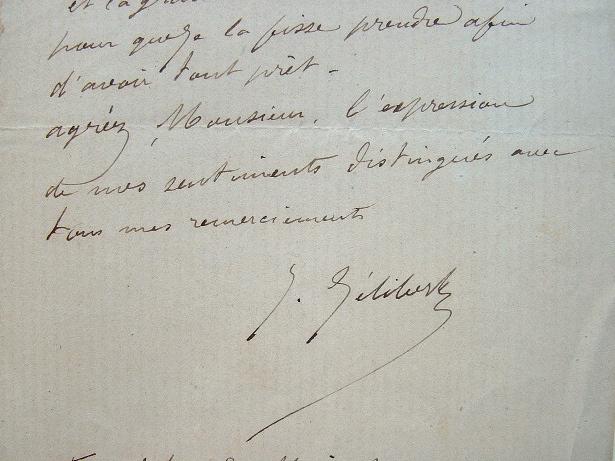 et la
pour que je la fisse prendre afin
d'avoir tout prêt -
agréez, Monsieur, l'expression
de mes sentiments distingués avec
tous mes remerciements
J. Gélibert